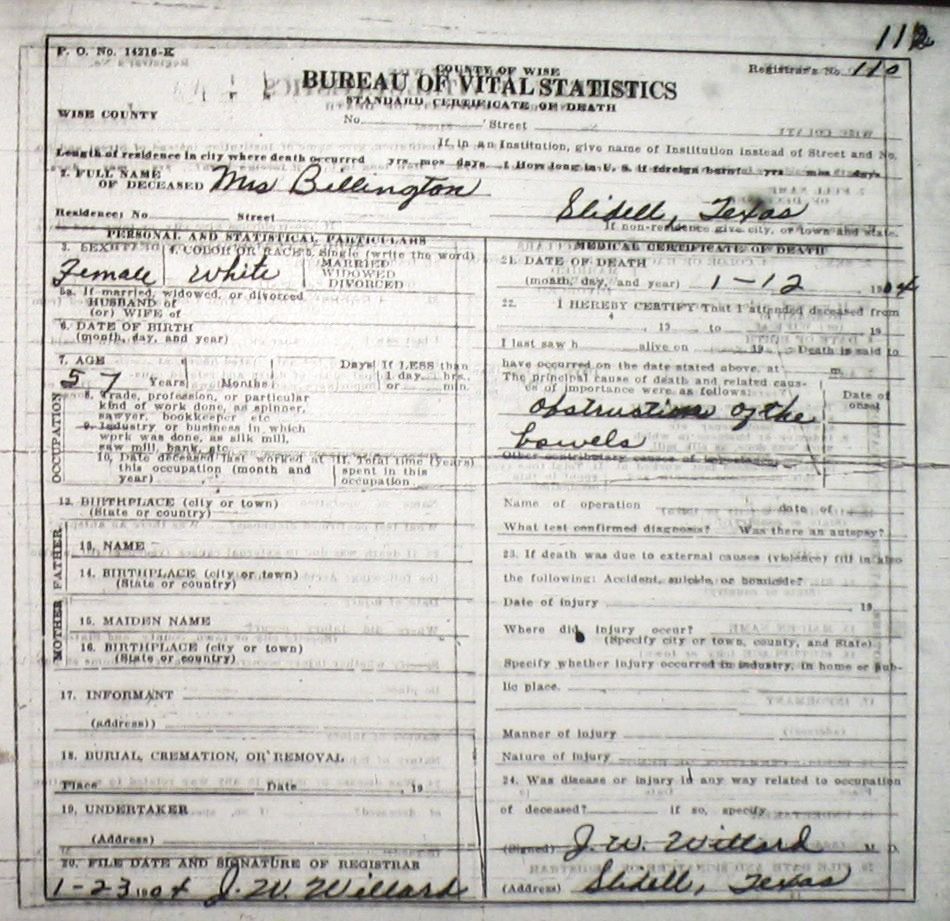 112
F. O. No. 14216-K
Registrar's No. 110
COUNTY OF WISE
BUREAU OF VITAL STATISTICS
STANDARD CERTIFICATE OF DEATH
WISE COUNTY
No. Street
If in an Institution, give name of Institution instead of Street and No.
Length of residence in city where death occurred yrs mos days How long in U. S. if foreign born? yrs mos days
2. FULL NAME
OF DECEASED Mrs Billington
Slidell, Texas
Residence: No Street
If non-residence give city, or town and state.
PERSONAL AND STATISTICAL PARTICULARS
3. SEX 4. COLOR OR RACE 5. Single (write the word)
MARRIED
WIDOWED
DIVORCED
Female White
5a. If married, widowed, or divorced
HUSBAND of
(or) WIFE of
6. DATE OF BIRTH
(month, day, and year)
7. AGE Days If LESS than
1 day hrs.
57 Years Months or min.
OCCUPATION
8. Trade, profession, or particular
kind of work done, as spinner,
sawyer, bookkeeper etc
9. Industry or business in which
work was done, as silk mill,
saw mill, bank, etc
10. Date deceased last worked at
this occupation (month and
year)
11. Total time (years)
spent in this
occupation
12. BIRTHPLACE (city or town)
(State or country)
FATHER
13. NAME
14. BIRTHPLACE (city or town)
(State or country)
MOTHER
15. MAIDEN NAME
16. BIRTHPLACE (city or town)
(State or country)
17. INFORMANT
(address))
18. BURIAL, CREMATION, OR REMOVAL
Place Date , 19
19. UNDERTAKER
(Address)
20. FILE DATE AND SIGNATURE OF REGISTRAR
1-23 1904 J. W. Willard
MEDICAL CERTIFICATE OF DEATH
21. DATE OF DEATH
(month, day, and year) 1-12 , 1904
22. I HEREBY CERTIFY That I attended deceased from
, 19 to , 19
I last saw h alive on 19 Death is said to
have occurred on the date stated above, at m.
The principal cause of death and related caus-
es of importance were as follows:
Date of
onset
obstruction of the
bowels
Other contributary causes of importance
Name of operation date of
What test confirmed diagnosis? Was there an autopsy?
23. If death was due to external causes (violence) fill in also
the following: Accident, suicide, or homicide?
Date of injury , 19
Where did injury occur?
(Specify city or town, county, and State)
Specify whether injury occurred in industry, in home or pub-
lic place.
Manner of injury
Nature of injury
24. Was disease or injury in any way related to occupation
of deceased? if so, specify
(Signed) J. W. Willard M. D.
(Address) Slidell, Texas